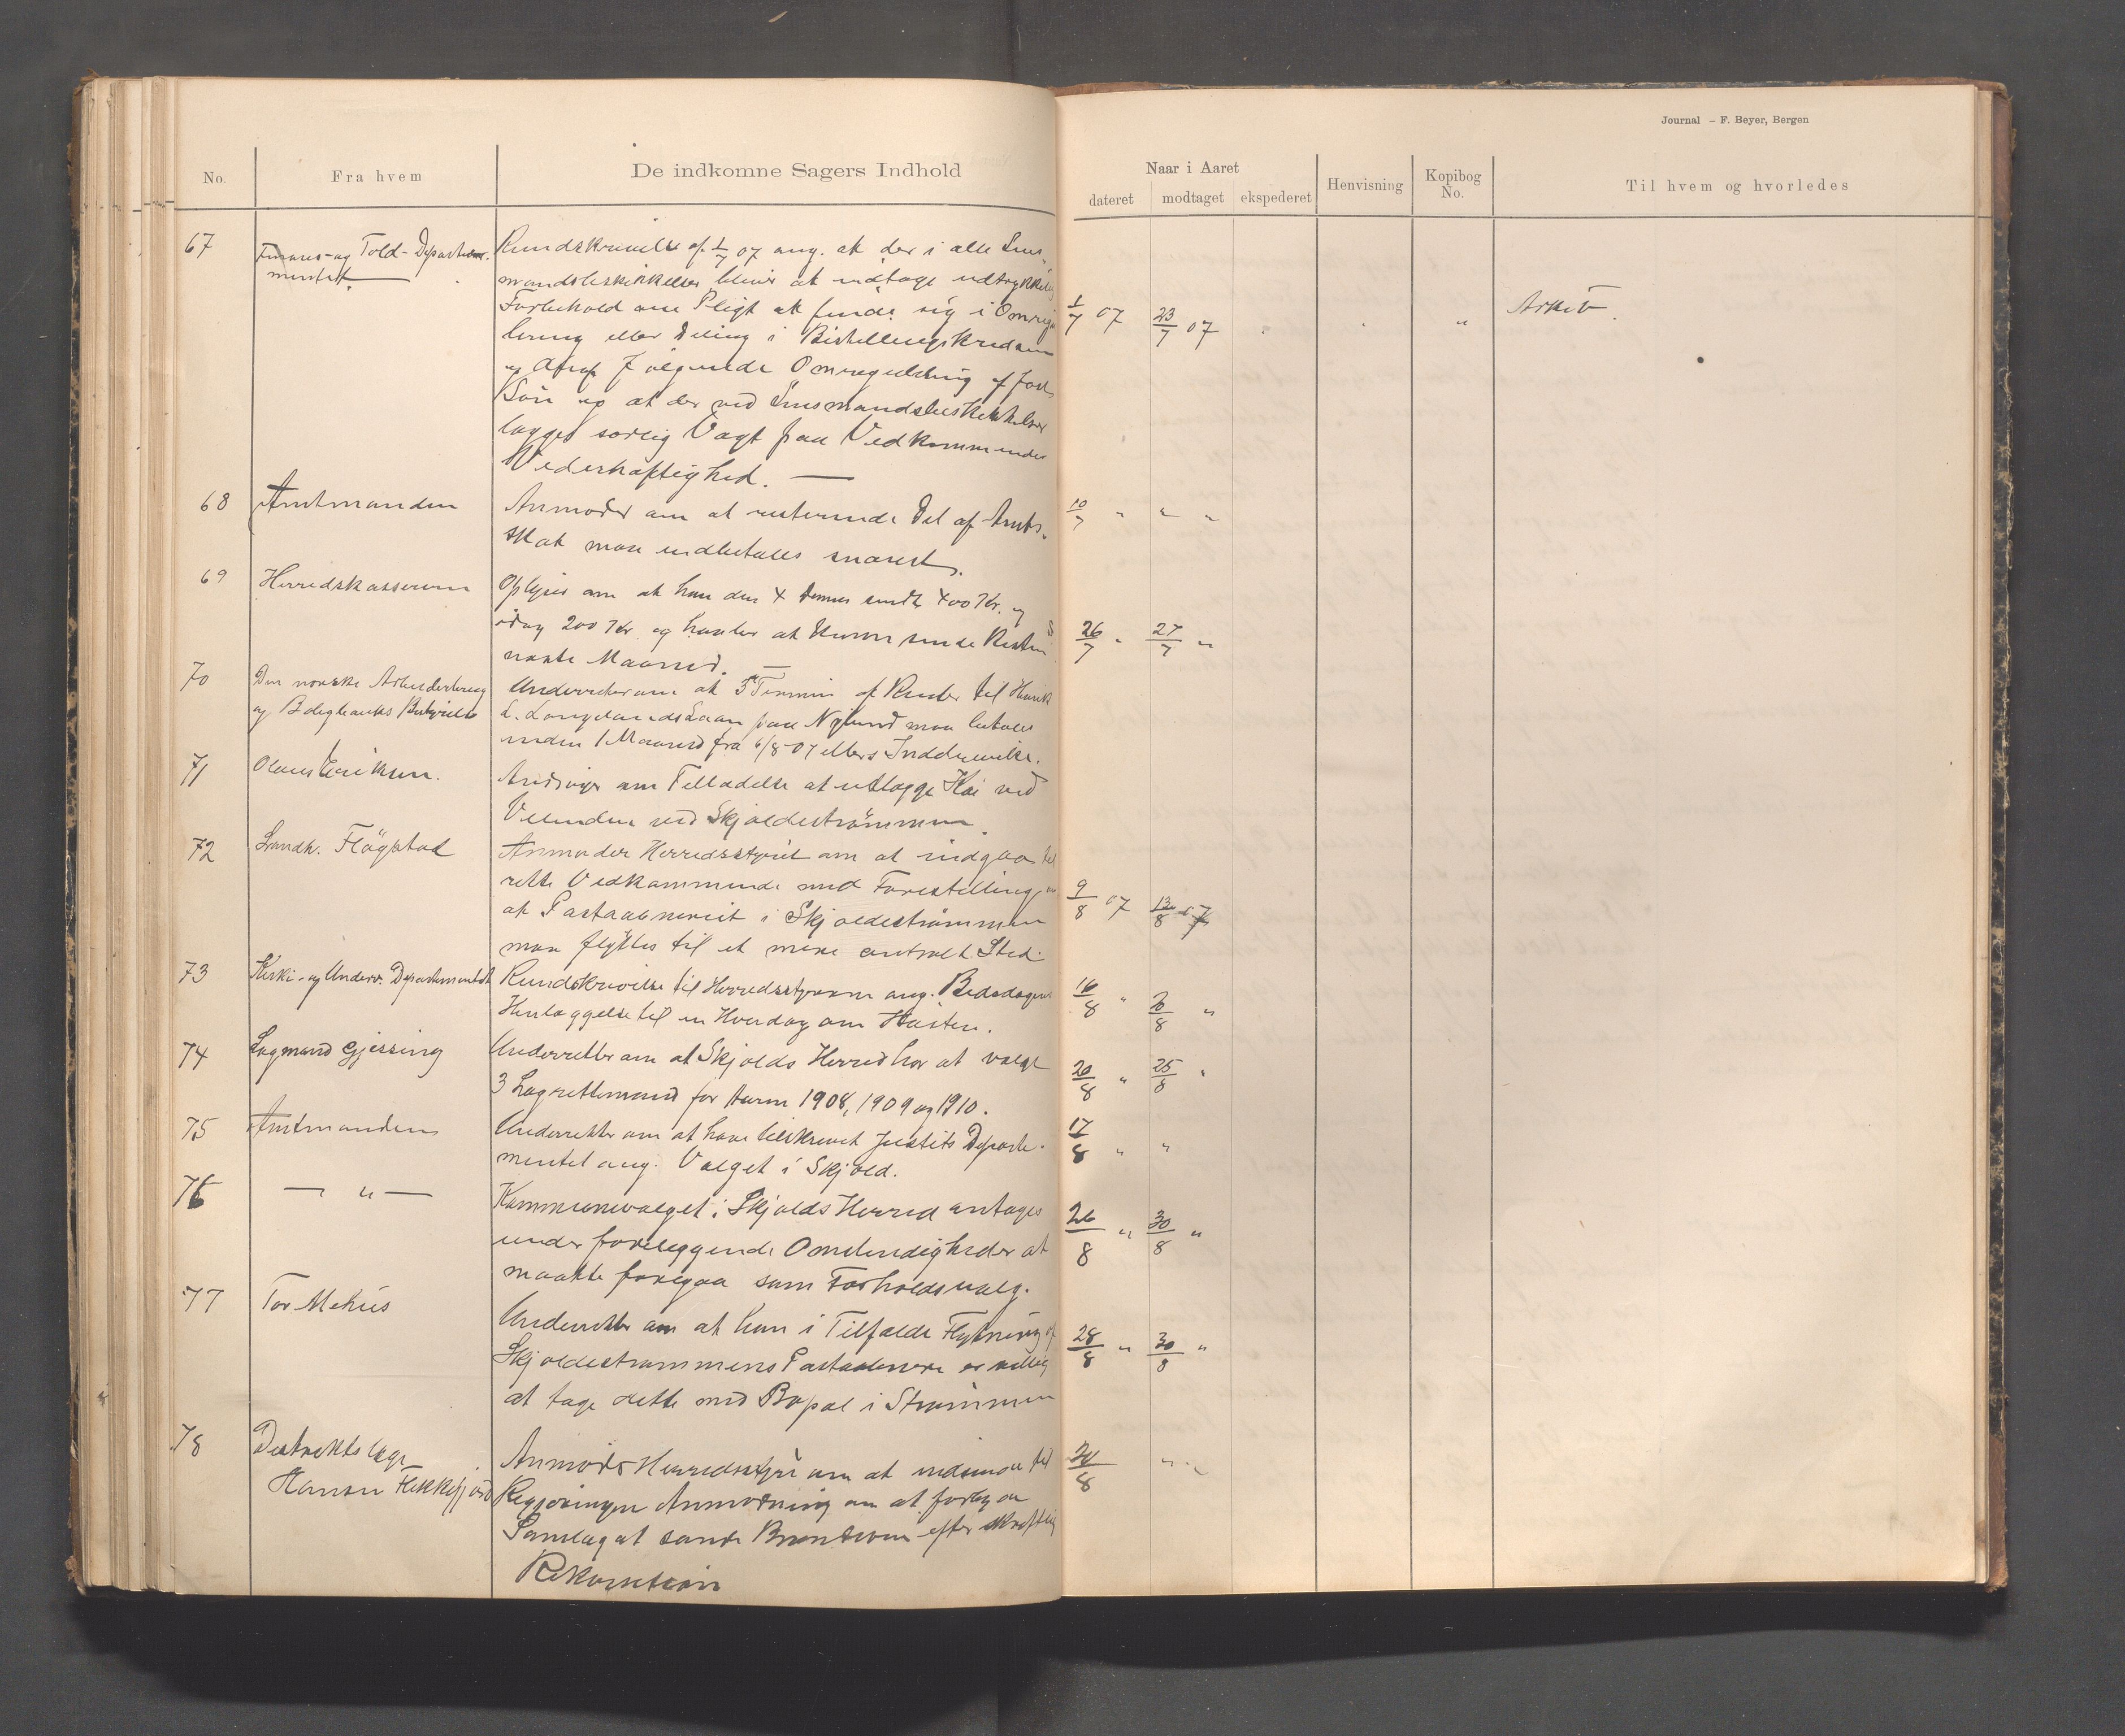 Journal – F. Beyer, Bergen
No. Fra hvem De indkomne Sagers Indhold Naar i Aaret dateret modtaget ekspederet Henvisning Kopibog No. Til hvem og hvorledes
67 Finans- og Told-Departe-
mentet.
Rundskrivelse af 1/7 07 ang. at der i alle Lens-
mandsbeskikkelser bliver at indtage udtrykkelig
Forbehold om Pligt at finde sig i Omregu
lering eller Deling i Bestillingskredsen
og deraf følgende Omregulering af fast
Løn og at der ved Lensmandsbeskikkelser
lægges særlig Vagt paa Vedkommendes
Vederhæftighed. —
1/7 07 23/7 07 " Arkiv.
68 Amtmanden
Anmoder om at resterende Del af Amts-
skat maa indbetales snarest.
10/7 " " "
69 Herredskassereren
Oplyser om at han den 4 dennes sendte 400 Kr. og
idag 200 Kr. og haaber at kunne sende Resten
næste Maaned. —
26/7 " 27/7 "
70 Den norske Arbeiderbrug
og Boligbanks Bestyrelse
Underretter om at 3die Termin af Renter til Henrik
L. Langelands Laan paa Nylund maa betales
inden 1 Maaned fra 6/8 07 ellers Inddrivelse.
71 Olaus Eriksen.
Andrager om Tilladelse at udlægge Kai ved
Veienden ved Skjoldestrømmen.
72 Landh. Fløgstad
Anmoder Herredsstyret om at indgaa til
rette Vedkommende med Forestilling om
at Postaabneriet i Skjoldestrømmen
maa flyttes til et mere centralt Sted.
9/8 07 13/8 07
73 Kirke- og Underv. Departementet
Rundskrivelse til Herredsstyrerne ang. Bededagens
Henlæggelse til en Hverdag om Høsten.
16/8 " 2/8 "
74 Lagmand Gjessing
Underretter om at Skjolds Herred har at vælge
3 Lagrettemænd for Aarene 1908, 1909 og 1910.
20/8 " 25/8 "
75 Amtmanden
Underretter om at have tilskrevet Justits Departe-
mentet ang. Valget i Skjold.
17/8 " "
76 — " —
Kommunevalget i Skjolds Herred antages
under foreliggende Omstendigheder at
maatte foregaa som Forholdsvalg.
26/8 " 30/8 "
77 Tor Mehus
Underretter om at han i Tilfælde Flytning af
Skjoldestrømmens Postaabneri er villig
at tage dette med Bopæl i Strømmen
28/8 " 30/8 "
78 Distriktslæge
Hansen Flekkefjord
Anmoder Herredsstyre om at indsende til
Regjeringen Anmodning om at forbyde
Samlag at sende Brændevin efter skriftlig
Rekvisition
30/8 " "